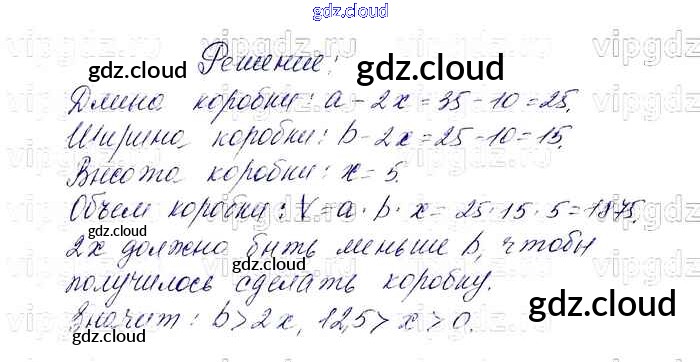 gdz.cloud
Решение:
gdz.cloud
gdz.cloud
Длина коробки: a - 2x = 35 - 10 = 25,
Ширина коробки: b - 2x = 25 - 10 = 15,
gdz.cloud
Высота коробки: x = 5.
gdz.cloud
Объем коробки: V = a · b · x = 25 · 15 · 5 = 1875,
gdz.cloud
2x должно быть меньше b, чтобы
получилось сделать коробку.
gdz.cloud
gdz.cloud
Значит: b > 2x, 12,5 > x > 0.
gdz.cloud